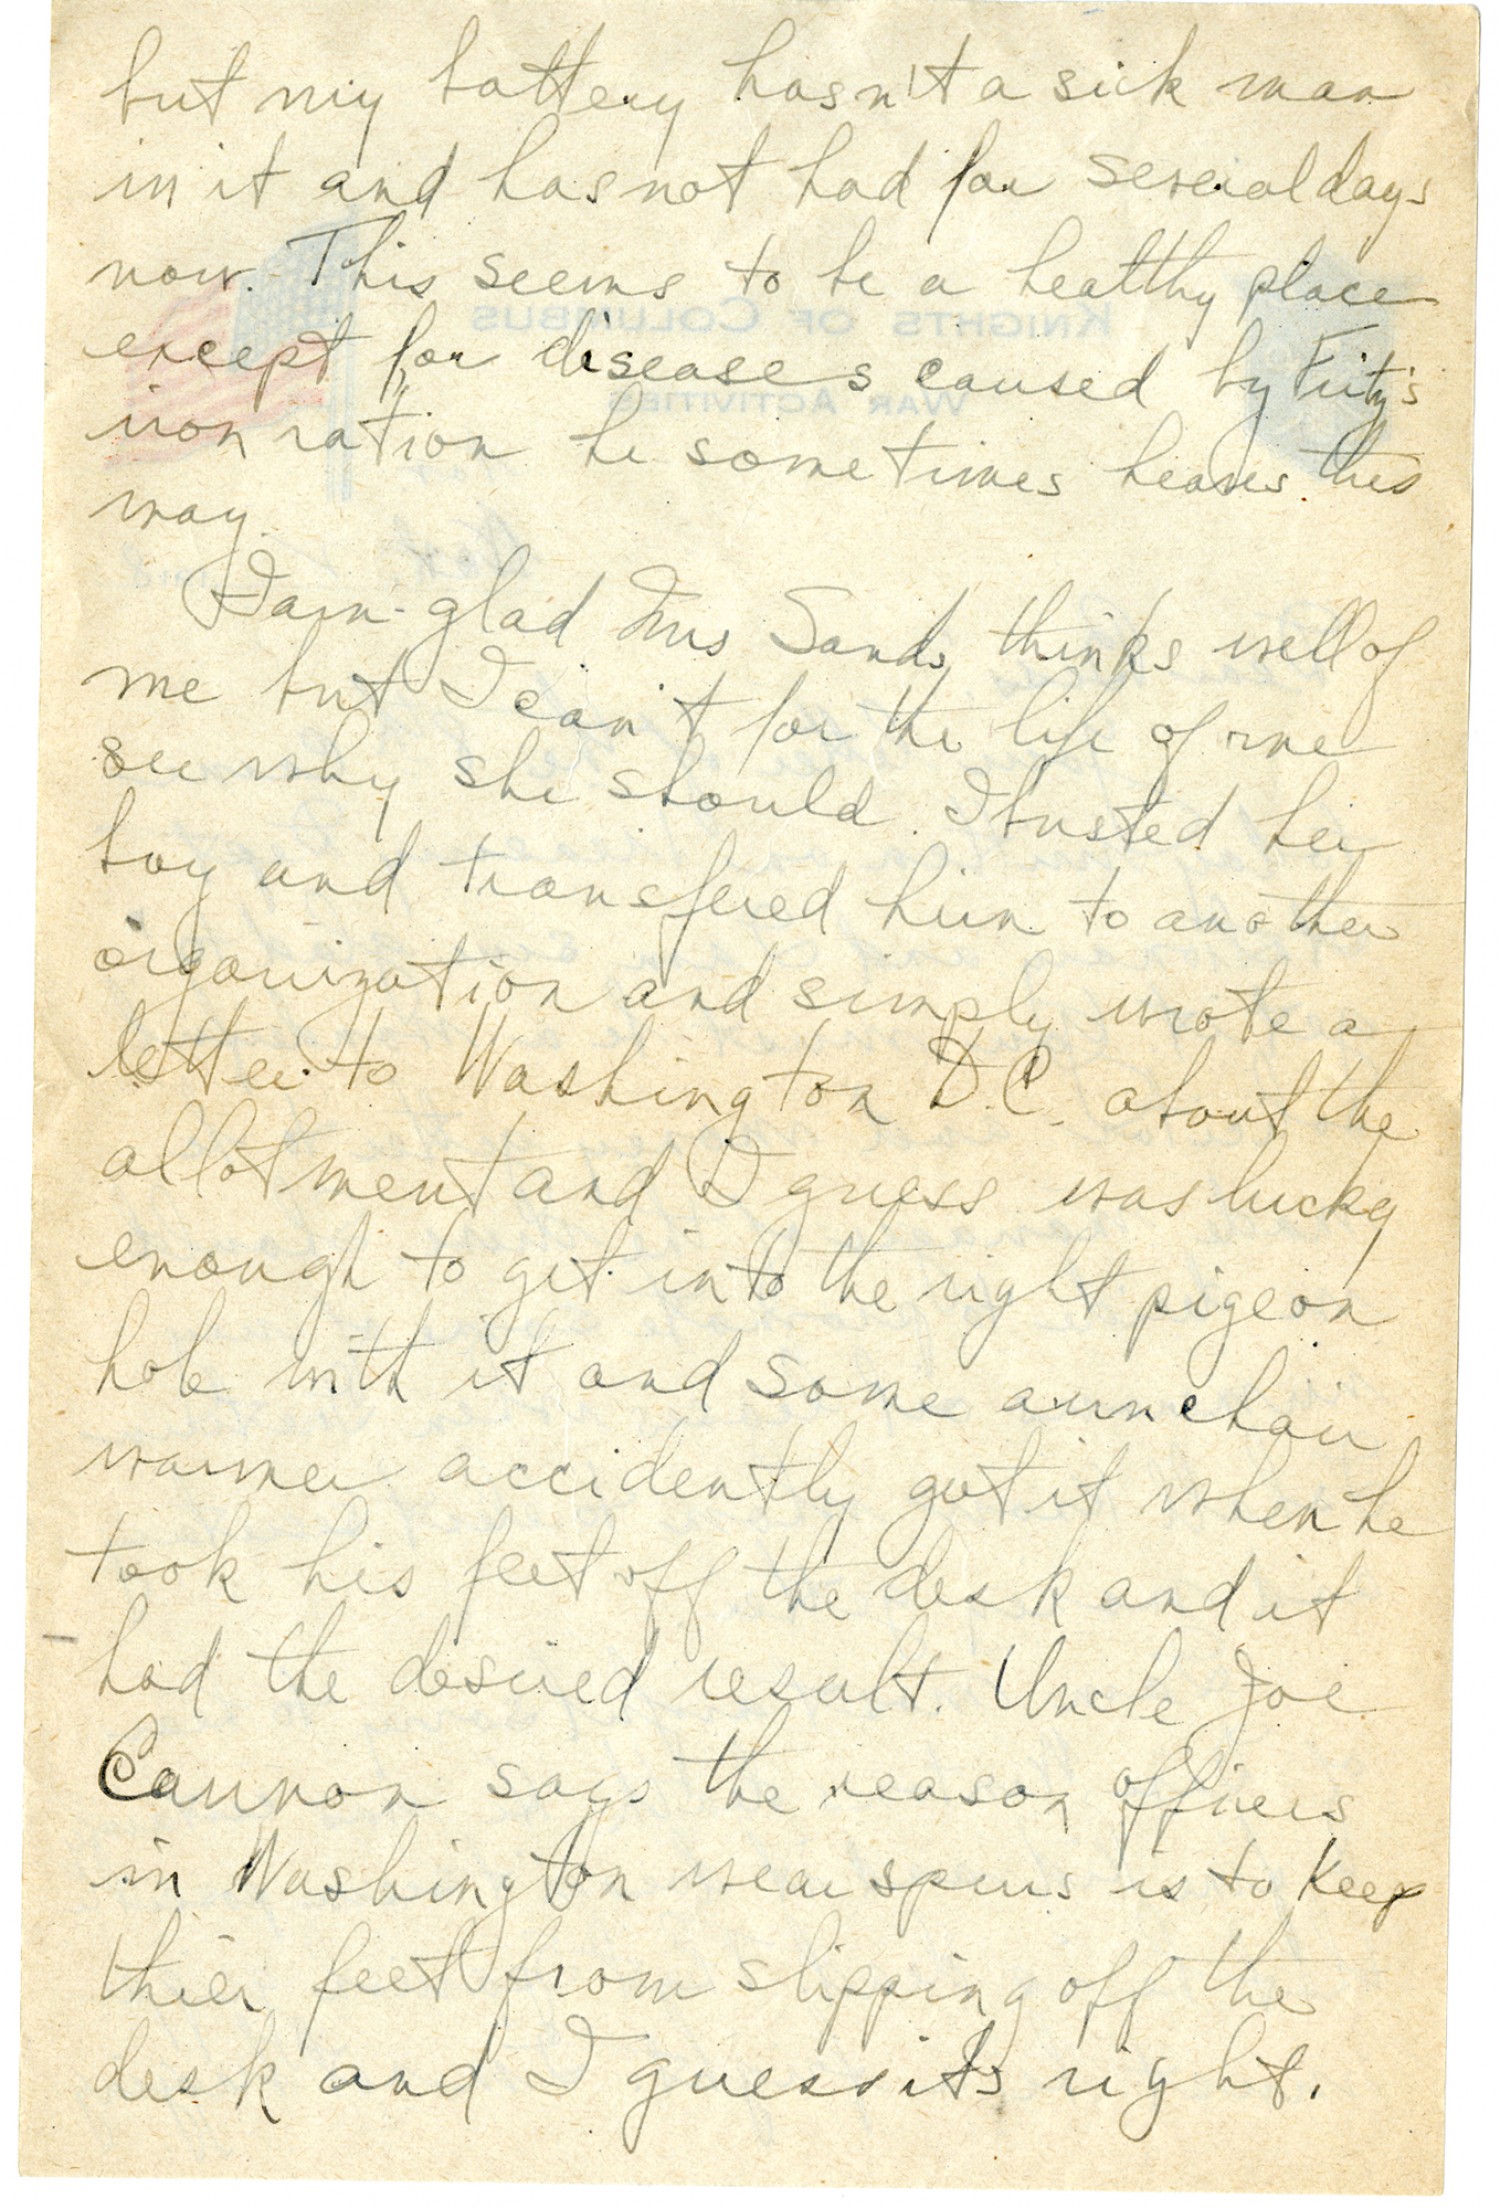 but my battery hasn't a sick man
in it and has not had for several days
now. This seems to be a healthy place
KNIGHTS OF COLUMBUS
except for diseases caused by Fritz's
WAR ACTIVITIES
iron ration he sometimes heaves this
way.
I am glad Mrs Sands thinks well of
me but I can't for the life of me
see why she should. I busted her
boy and transfered him to another
organization and simply wrote a
letter to Washington D.C. about the
allotment and I guess was lucky
enough to get into the right pigeon
hole with it and some arm chair
warmer accidently got it when he
took his feet off the desk and it
had the desired result. Uncle Joe
Cannon says the reason officers
in Washington wear spurs is to keep
thier feet from slipping off the
desk and I guess its right.